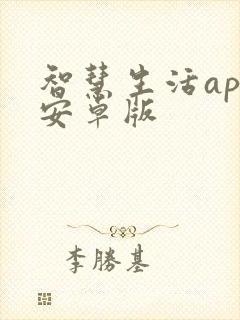 智慧生活ap
安卓版
李勝基